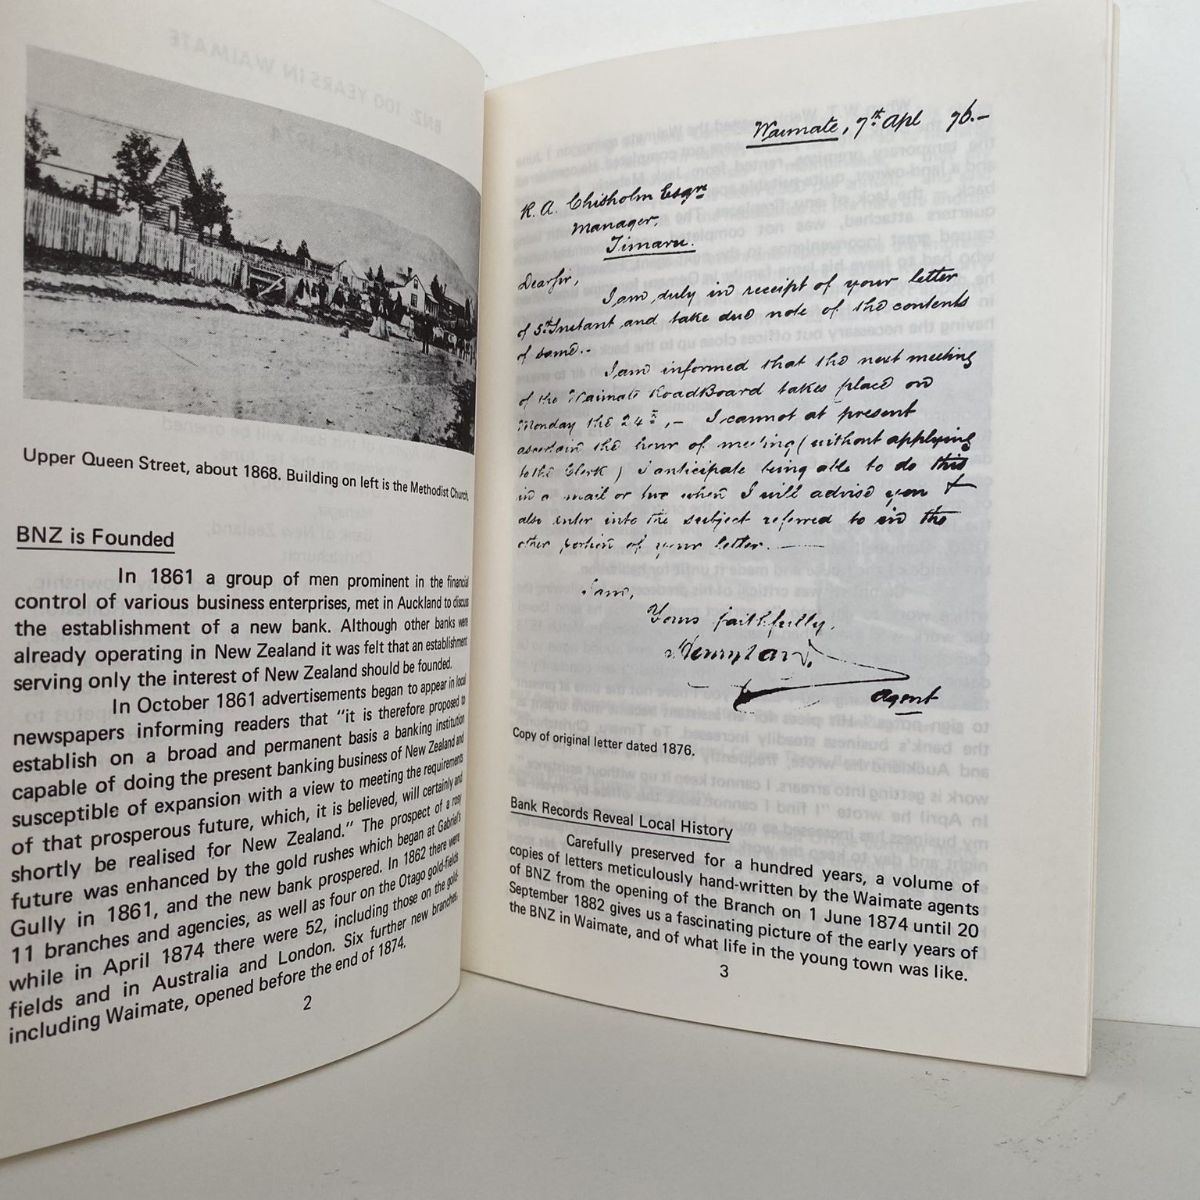 Upper Queen Street, about 1868. Building on left is the Methodist Church.
BNZ is Founded
In 1861 a group of men prominent in the financial
control of various business enterprises, met in Auckland to discuss
the establishment of a new bank. Although other banks were
already operating in New Zealand it was felt that an establishment
serving only the interest of New Zealand should be founded.
In October 1861 advertisements began to appear in local
newspapers informing readers that "it is therefore proposed to
establish on a broad and permanent basis a banking institution
capable of doing the present banking business of New Zealand and
susceptible of expansion with a view to meeting the requirements
of that prosperous future, which, it is believed, will certainly and
shortly be realised for New Zealand." The prospect of a rosy
future was enhanced by the gold rushes which began at Gabriel's
Gully in 1861, and the new bank prospered. In 1862 there were
11 branches and agencies, as well as four on the Otago gold-fields
while in April 1874 there were 52, including those on the gold-
fields and in Australia and London. Six further new branches,
including Waimate, opened before the end of 1874.
2
Waimate, 7th Apl 76.-
R. A. Chisholm Esqre
Manager,
Timaru.
Dear Sir,
I am duly in receipt of your letter
of 5th Instant and take due note of the contents
of same.-
I am informed that the next meeting
of the Waimate Road Board takes place on
Monday the 24th,- I cannot at present
ascertain the hour of meeting (without applying
to the Clerk) I anticipate being able to do this
in a mail or two when I will advise you &
also enter into the subject referred to in the
other portion of your letter.
I am,
Yours faithfully,
Agent
Copy of original letter dated 1876.
Bank Records Reveal Local History
Carefully preserved for a hundred years, a volume of
copies of letters meticulously hand-written by the Waimate agents
of BNZ from the opening of the Branch on 1 June 1874 until 20
September 1882 gives us a fascinating picture of the early years of
the BNZ in Waimate, and of what life in the young town was like.
3